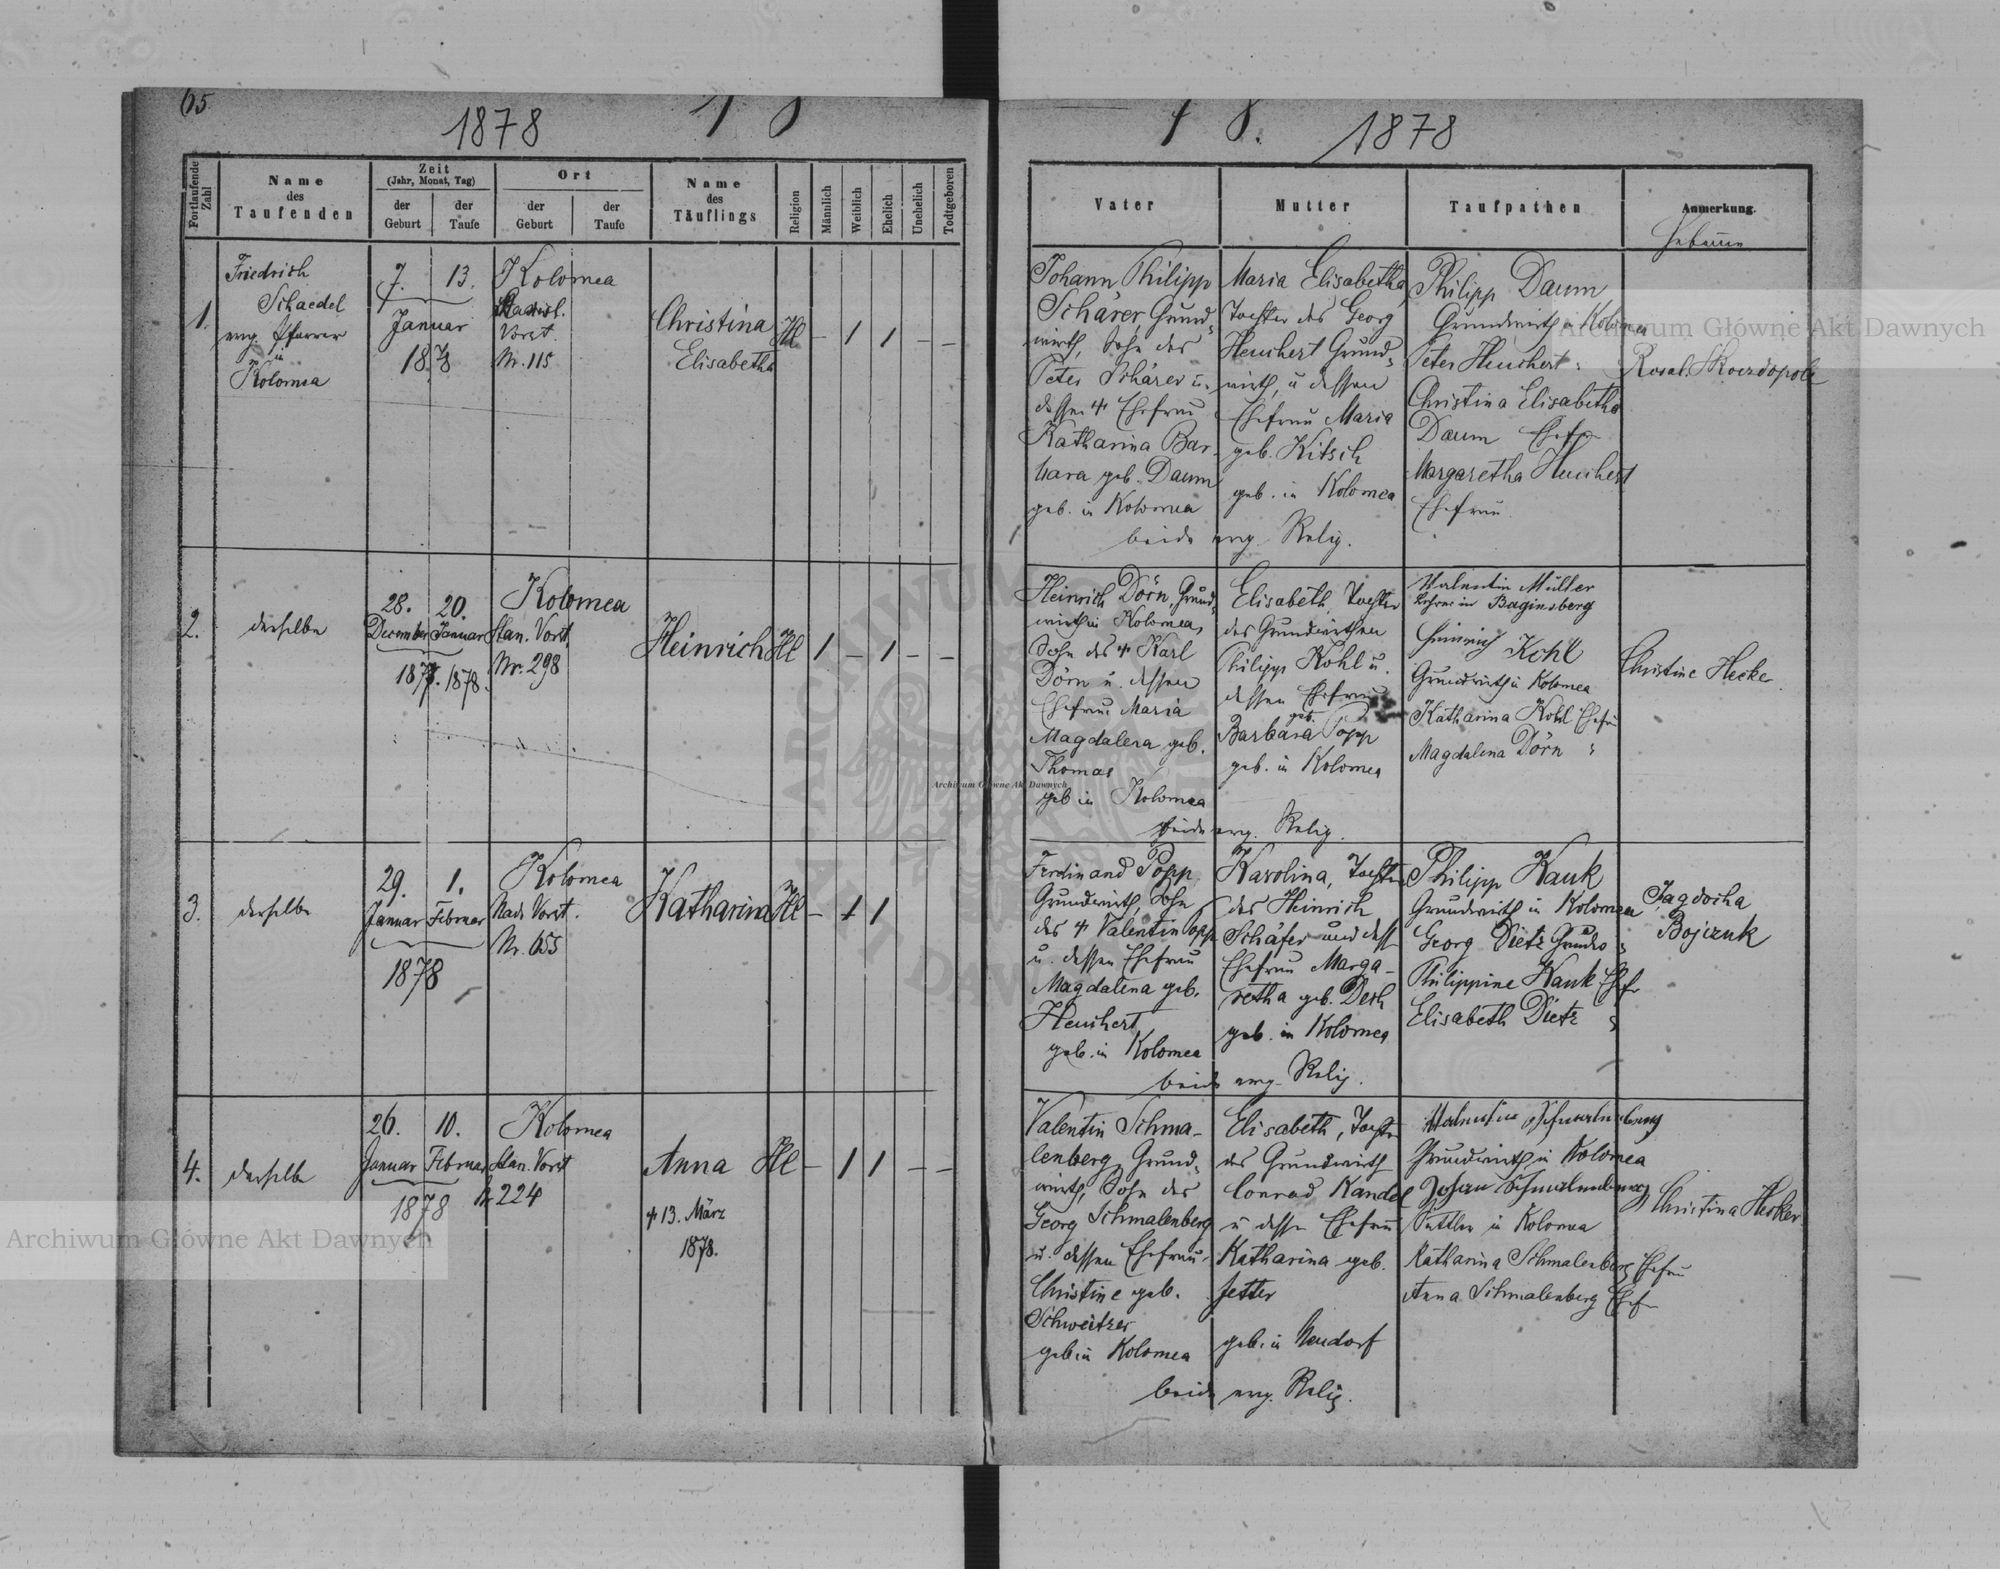 65
1878
1878
Fortlaufende Zahl
Name
des
Taufenden
Zeit
(Jahr, Monat, Tag)
der
Geburt
der
Taufe
Ort
der
Geburt
der
Taufe
Name
des
Täuflings
Religion
Männlich
Weiblich
Ehelich
Unehelich
Todtgeboren
Vater
Mutter
Taufpathen
Anmerkung.
Hebamme
1.
Friedrich
Schaedel
evg. Pfarrer
in
Kolomea
7. 13.
Januar
1878
Kolomea
Stanisl.
Vorst.
Nr. 115
Christina
Elisabetha
HC
– 1 1 – –
Johann Philipp
Schärer, Grund-
wirth, Sohn des
Peter Schärer u.
dessen Ehefrau
Katharina Bar-
bara geb. Daum
geb. in Kolomea
Maria Elisabetha,
Tochter des Georg
Heuchert Grund-
wirth, u dessen
Ehefrau Maria
geb. Kitsch
geb. in Kolomea
beide evg. Relig.
Philipp Daum
Grundwirth in Kolomea
Peter Heuchert "
Christina Elisabetha
Daum Ehefr
Margaretha Heuchert
Ehefrau
Rosal. Skorzdopole
2.
derselbe
28. 20.
December Januar
1877. 1878.
Kolomea
Stan. Vorst
Nr. 298
Heinrich
HC
1 – 1 – –
Heinrich Dörn, Grund-
wirth in Kolomea,
Sohn des Karl
Dörn u. dessen
Ehefrau Maria
Magdalena geb.
Thomas
geb in Kolomea
Elisabeth, Tochter
des Grundwirthen
Philipp Kohl u.
dessen Ehefrau
Barbara geb. Popp
geb. in Kolomea
beide evg. Relig.
Valentin Müller
Lehrer in Baginsberg
Heinrich Kohl
Grundwirth in Kolomea
Katharina Kohl Ehefr
Magdalena Dörn "
Christine Hecker
3.
derselbe
29. 1.
Januar Februar
1878
Kolomea
Nadr Vorst.
Nr. 655
Katharina
HC
– 1 1
Ferdinand Popp
Grundwirth, Sohn
des Valentin Popp
u. dessen Ehefrau
Magdalena geb.
Heuchert
geb. in Kolomea
Karolina, Tochter
des Heinrich
Schäfer und dess
Ehefrau Marga-
retha geb. Desh
geb. in Kolomea
beide evg. Relig.
Philipp Hauk
Grundwirth in Kolomea
Georg Dietz Grundw "
Philippine Hauk Ehefr
Elisabeth Dietz "
Jagdocha
Bojczuk
4.
derselbe
26. 10.
Januar Februar
1878
Kolomea
Stan. Vorst
Nr 224
Anna
13. März
1878.
HC
– 1 1 – –
Valentin Schma-
lenberg, Grund-
wirth, Sohn des
Georg Schmalenberg
u. dessen Ehefrau
Christine geb.
Schweitzer
geb in Kolomea
Elisabeth, Tochter
des Grundwirth
Conrad Kandel
u dessen Ehefrau
Katharina geb.
Jetter
geb. in Neudorf
beide evg. Relig.
Valentin Schmalenberg
Grundwirth in Kolomea
Johann Schmalenberg
Sattler in Kolomea
Katharina Schmalenberg Ehefrau
Anna Schmalenberg Ehefr
Christina Hecker
Archiwum Główne Akt Dawnych
Archiwum Główne Akt Dawnych
Archiwum Główne Akt Dawnych